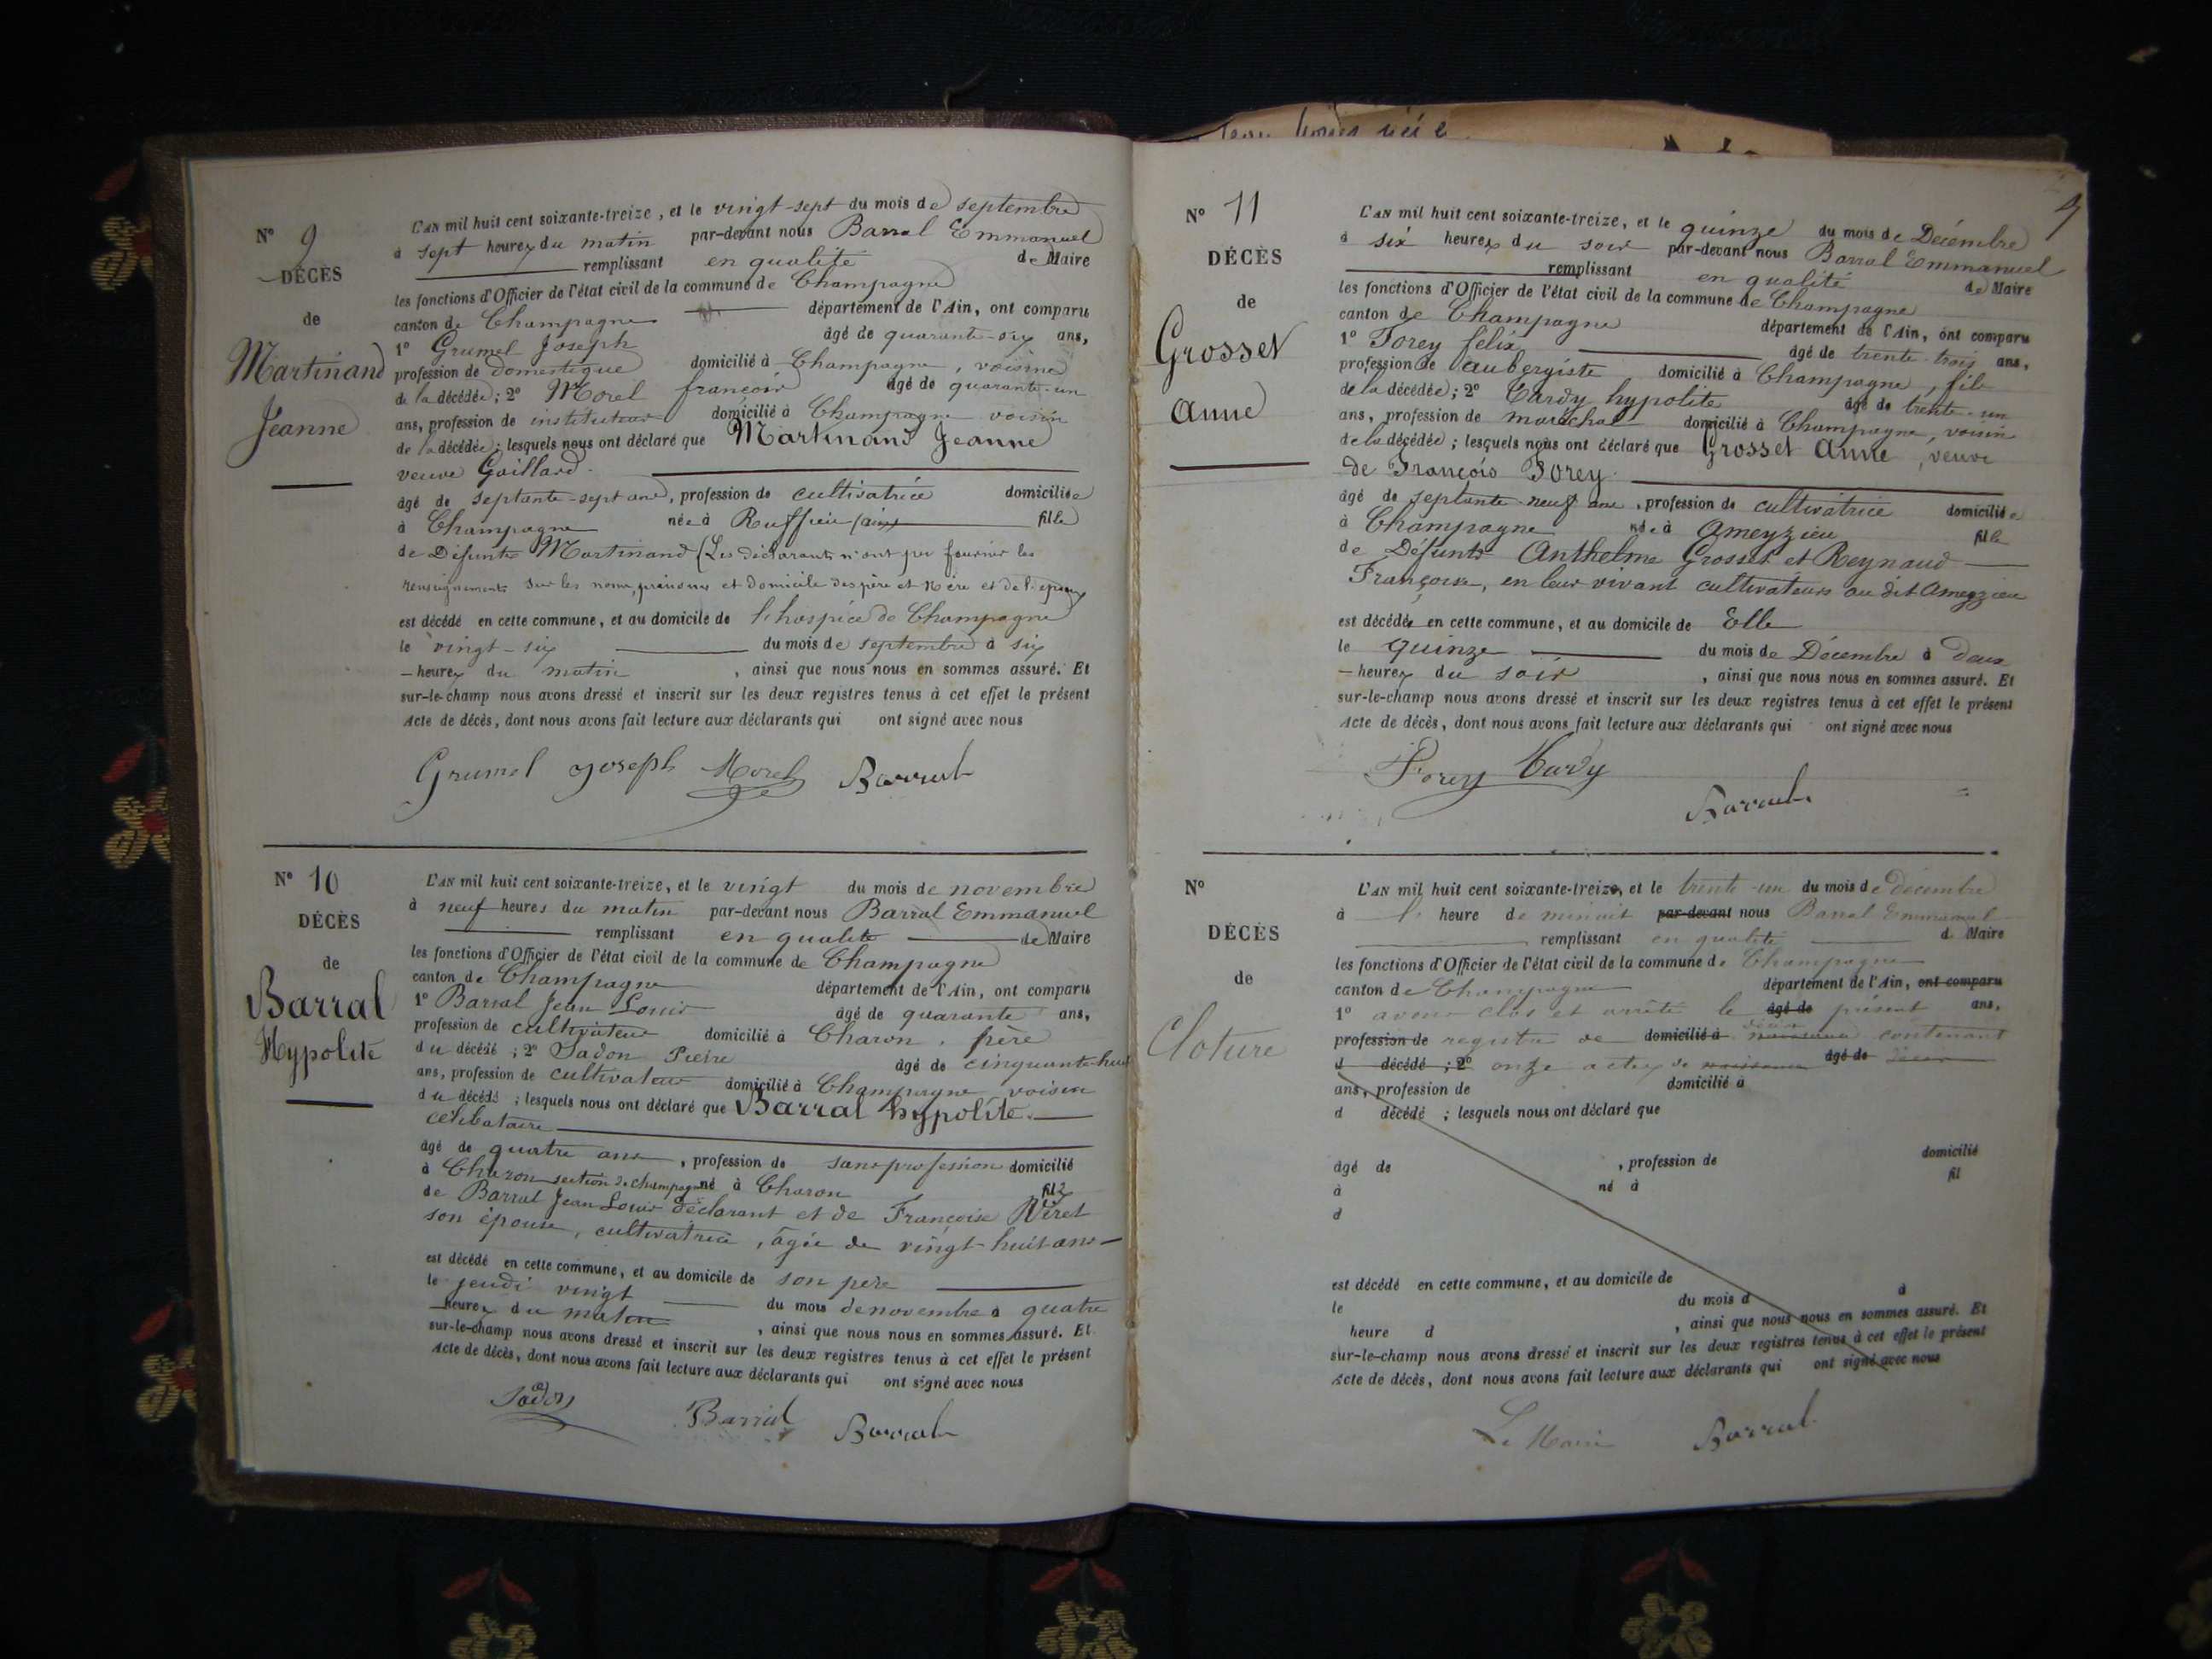 N° 9
DÉCÈS
de
Martinand
Jeanne
L'AN mil huit cent soixante-treize, et le vingt-sept du mois de septembre
à sept heures du matin par-devant nous Barral Emmanuel
remplissant en qualité de Maire
les fonctions d'Officier de l'état civil de la commune de Champagne
canton de Champagne département de l'Ain, ont comparu
1° Grumel Joseph âgé de quarante-six ans,
profession de domestique domicilié à Champagne, voisine
de la décédée; 2° Morel françois âgé de quarante-un
ans, profession de instituteur domicilié à Champagne voisin
de la décédée; lesquels nous ont déclaré que Martinand Jeanne
veuve Gaillard.
âgé de septante-sept ans, profession de cultivatrice domiciliée
à Champagne née à Ruffieu (ain) fille
de Défunts Martinand (Les déclarants n'ont pu fournir les
renseignements sur les noms, prénoms et domicile des père et Mère et de l'époux
est décédé en cette commune, et au domicile de l'hospice de Champagne
le vingt-six du mois de septembre à six
heures du matin, ainsi que nous nous en sommes assuré. Et
sur-le-champ nous avons dressé et inscrit sur les deux registres tenus à cet effet le présent
Acte de décès, dont nous avons fait lecture aux déclarants qui ont signé avec nous
Grumel Joseph Morel Barral
N° 10
DÉCÈS
de
Barral
Hypolite
L'AN mil huit cent soixante-treize, et le vingt du mois de novembre
à neuf heures du matin par-devant nous Barral Emmanuel
remplissant en qualité de Maire
les fonctions d'Officier de l'état civil de la commune de Champagne
canton de Champagne département de l'Ain, ont comparu
1° Barral Jean Louis âgé de quarante ans,
profession de cultivateur domicilié à Charon, père
du décédé; 2° Sadon Pierre âgé de cinquante-huit
ans, profession de cultivateur domicilié à Champagne voisin
du décédé; lesquels nous ont déclaré que Barral hypolite.
célibataire
âgé de quatre ans, profession de sans profession domicilié
à Charon section de champagne né à Charon fils
de Barral Jean Louis déclarant et de Françoise Véret
son épouse, cultivatrice, âgée de vingt-huit ans
est décédé en cette commune, et au domicile de son père
le jeudi vingt du mois de novembre à quatre
heures du matin, ainsi que nous nous en sommes assuré. Et
sur-le-champ nous avons dressé et inscrit sur les deux registres tenus à cet effet le présent
Acte de décès, dont nous avons fait lecture aux déclarants qui ont signé avec nous
Sadon Barral Barral
N° 11
DÉCÈS
de
Grosset
Anne
L'AN mil huit cent soixante-treize, et le quinze du mois de Décembre
à six heures du soir par-devant nous Barral Emmanuel
remplissant en qualité de Maire
les fonctions d'Officier de l'état civil de la commune de Champagne
canton de Champagne département de l'Ain, ont comparu
1° Forey félix âgé de trente-trois ans,
profession de aubergiste domicilié à Champagne, fils
de la décédée; 2° Tardy hypolite âgé de trente-un
ans, profession de maréchal domicilié à Champagne, voisin
de la décédée; lesquels nous ont déclaré que Grosset Anne, veuve
de François Forey.
âgé de septante-neuf ans, profession de cultivatrice domiciliée
à Champagne née à Ameyzieu fille
de Défunts Anthelme Grosset et Reynaud
Françoise, en leur vivant cultivateurs au dit Ameyzieu
est décédée en cette commune, et au domicile de Elle
le quinze du mois de Décembre à deux
heures du soir, ainsi que nous nous en sommes assuré. Et
sur-le-champ nous avons dressé et inscrit sur les deux registres tenus à cet effet le présent
Acte de décès, dont nous avons fait lecture aux déclarants qui ont signé avec nous
Forey Tardy
Barral
N°
DÉCÈS
de
Cloture
L'AN mil huit cent soixante-treize, et le trente-un du mois de décembre
à l' heure de minuit par-devant nous Barral Emmanuel
remplissant en qualité d Maire
les fonctions d'Officier de l'état civil de la commune de Champagne
canton de Champagne département de l'Ain, ont comparu
1° avons clos et arrêté le âgé de présent ans,
profession de registre de domicilié à naissance décès contenant
d décédé; 2° onze actes de naissance âgé de décès
ans, profession de domicilié à
d décédé; lesquels nous ont déclaré que
âgé de, profession de domicilié
à né à fil
d
est décédé en cette commune, et au domicile de
le du mois d à
heure d, ainsi que nous nous en sommes assuré. Et
sur-le-champ nous avons dressé et inscrit sur les deux registres tenus à cet effet le présent
Acte de décès, dont nous avons fait lecture aux déclarants qui ont signé avec nous
Le Maire Barral